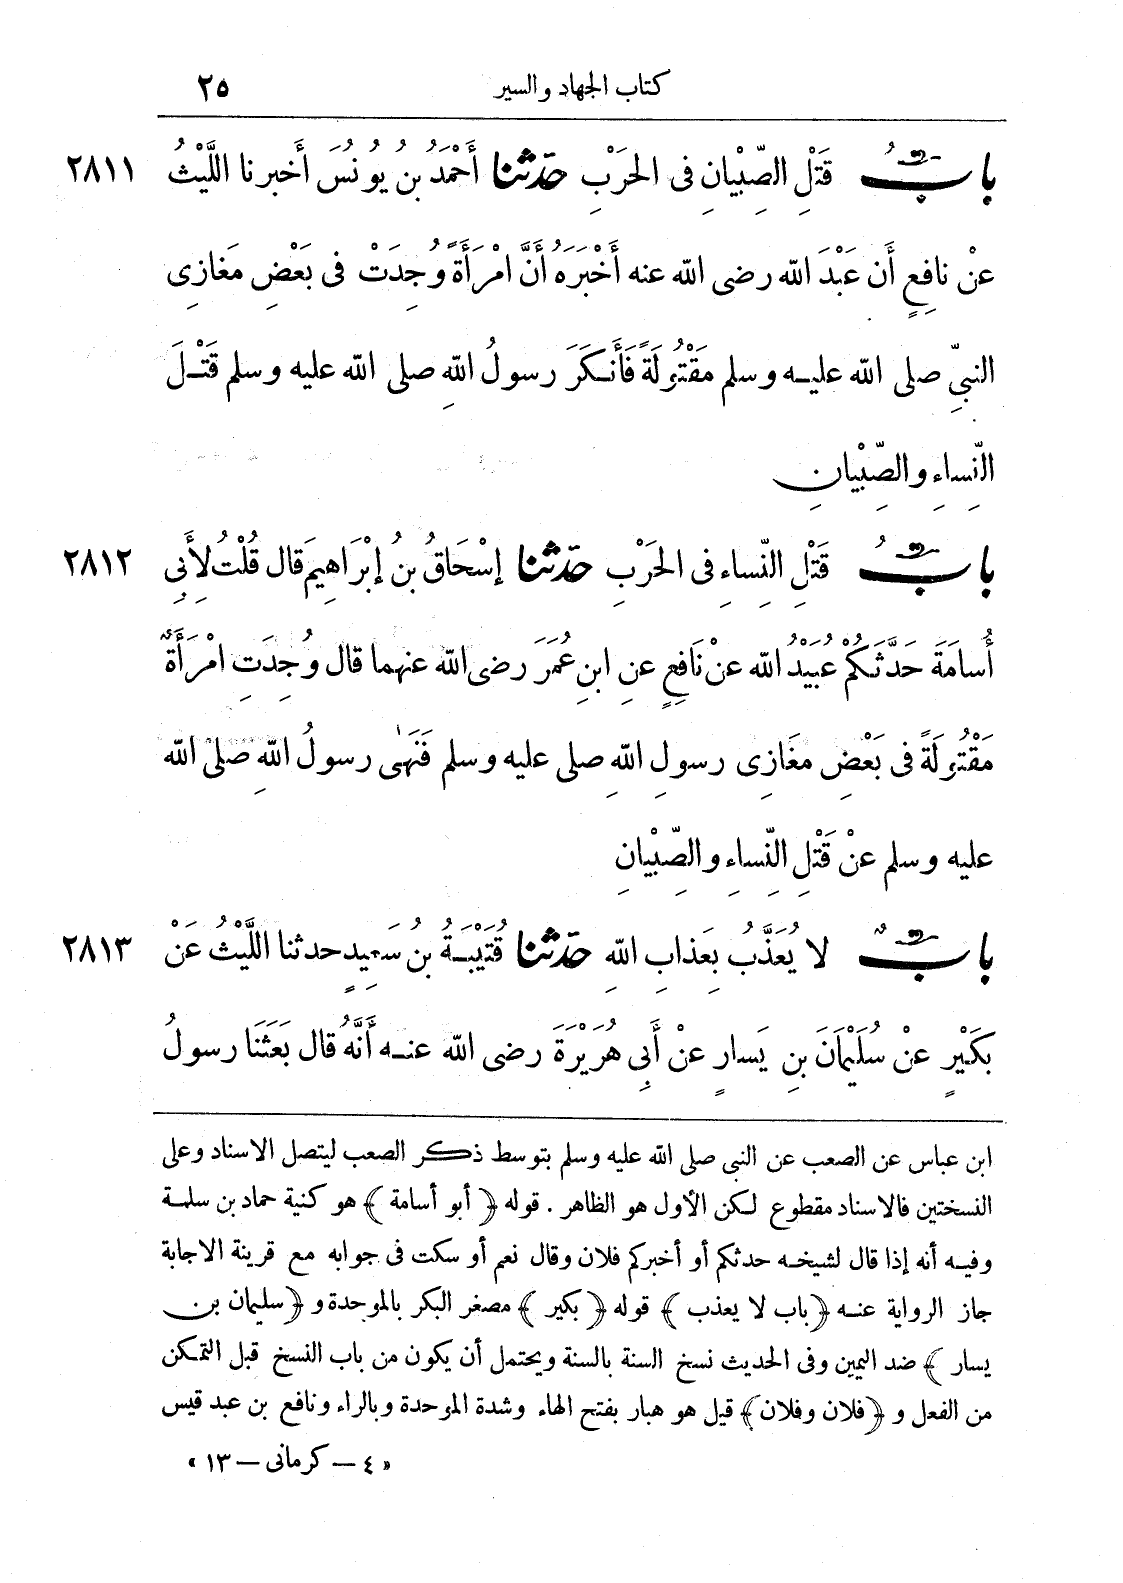 كتاب الجهاد والسير ٢٥
باب قَتْلِ الصِّبْيانِ فى الحَرْبِ حدّثنا أَحْمَدُ بن يُونُسَ أَخبرنا اللَّيْثُ ٢٨١١
عنْ نافِعٍ أَن عَبْدَ الله رضى الله عنه أَخْبَرَهُ أَنَّ امْرَأَةً وُجِدَتْ فى بَعْضِ مَغازِى
النبيِّ صلى الله عليه وسلم مَقْتُولَةً فَأَنكَرَ رسولُ اللهِ صلى الله عليه وسلم قَتْلَ
النِّساءِ والصِّبْيانِ
بابُ قَتْلِ النِّساءِ فى الحَرْبِ حدّثنا إسْحَاقُ بنُ إبْرَاهِيمَ قال قُلْتُ لِأَبِى ٢٨١٢
أُسامَةَ حَدَّثَكُمْ عُبَيْدُ الله عنْ نَافِعٍ عنِ ابنِ عُمَرَ رضى الله عنهما قال وُجِدَتِ امْرَأَةٌ
مَقْتُولَةً فى بَعْضِ مغَازِى رسولِ اللهِ صلى عليه وسلم فَنَهَى رسولُ اللهِ صلى الله
عليه وسلم عنْ قَتْلِ النِّساءِ والصِّبْيانِ
بابٌ لا يُعَذَّبُ بِعَذابِ اللهِ حدّثنا قُتَيْبَةُ بنُ سَعِيدٍ حدثنا اللَّيْثُ عَنْ ٢٨١٣
بُكَيْرٍ عنْ سُلَيْمَانَ بنِ يَسارٍ عنْ أَبِى هُرَيْرَةَ رضى الله عنه أَنَّهُ قال بَعَثَنَا رسولُ
ابن عباس عن الصعب عن النبى صلى الله عليه وسلم بتوسط ذكر الصعب ليتصل الاسناد وعلى
النسختين فالاسناد مقطوع لكن الأول هو الظاهر . قوله ﴿ أبو أسامة ﴾ هو كنية حماد بن سلمة
وفيه أنه إذا قال لشيخه حدثكم أو أخبركم فلان وقال نعم أو سكت فى جوابه مع قرينة الاجابة
جاز الرواية عنه ﴿ باب لا يعذب ﴾ قوله ﴿ بكير ﴾ مصغر البكر بالموحدة و ﴿ سليمان بن
يسار ﴾ ضد اليمين وفى الحديث نسخ السنة بالسنة ويحتمل أن يكون من باب النسخ قبل التمكن
من الفعل و ﴿ فلان وفلان ﴾ قيل هو هبار بفتح الهاء وشدة الموحدة وبالراء ونافع بن عبد قيس
« ٤ – كرمانى – ١٣ »